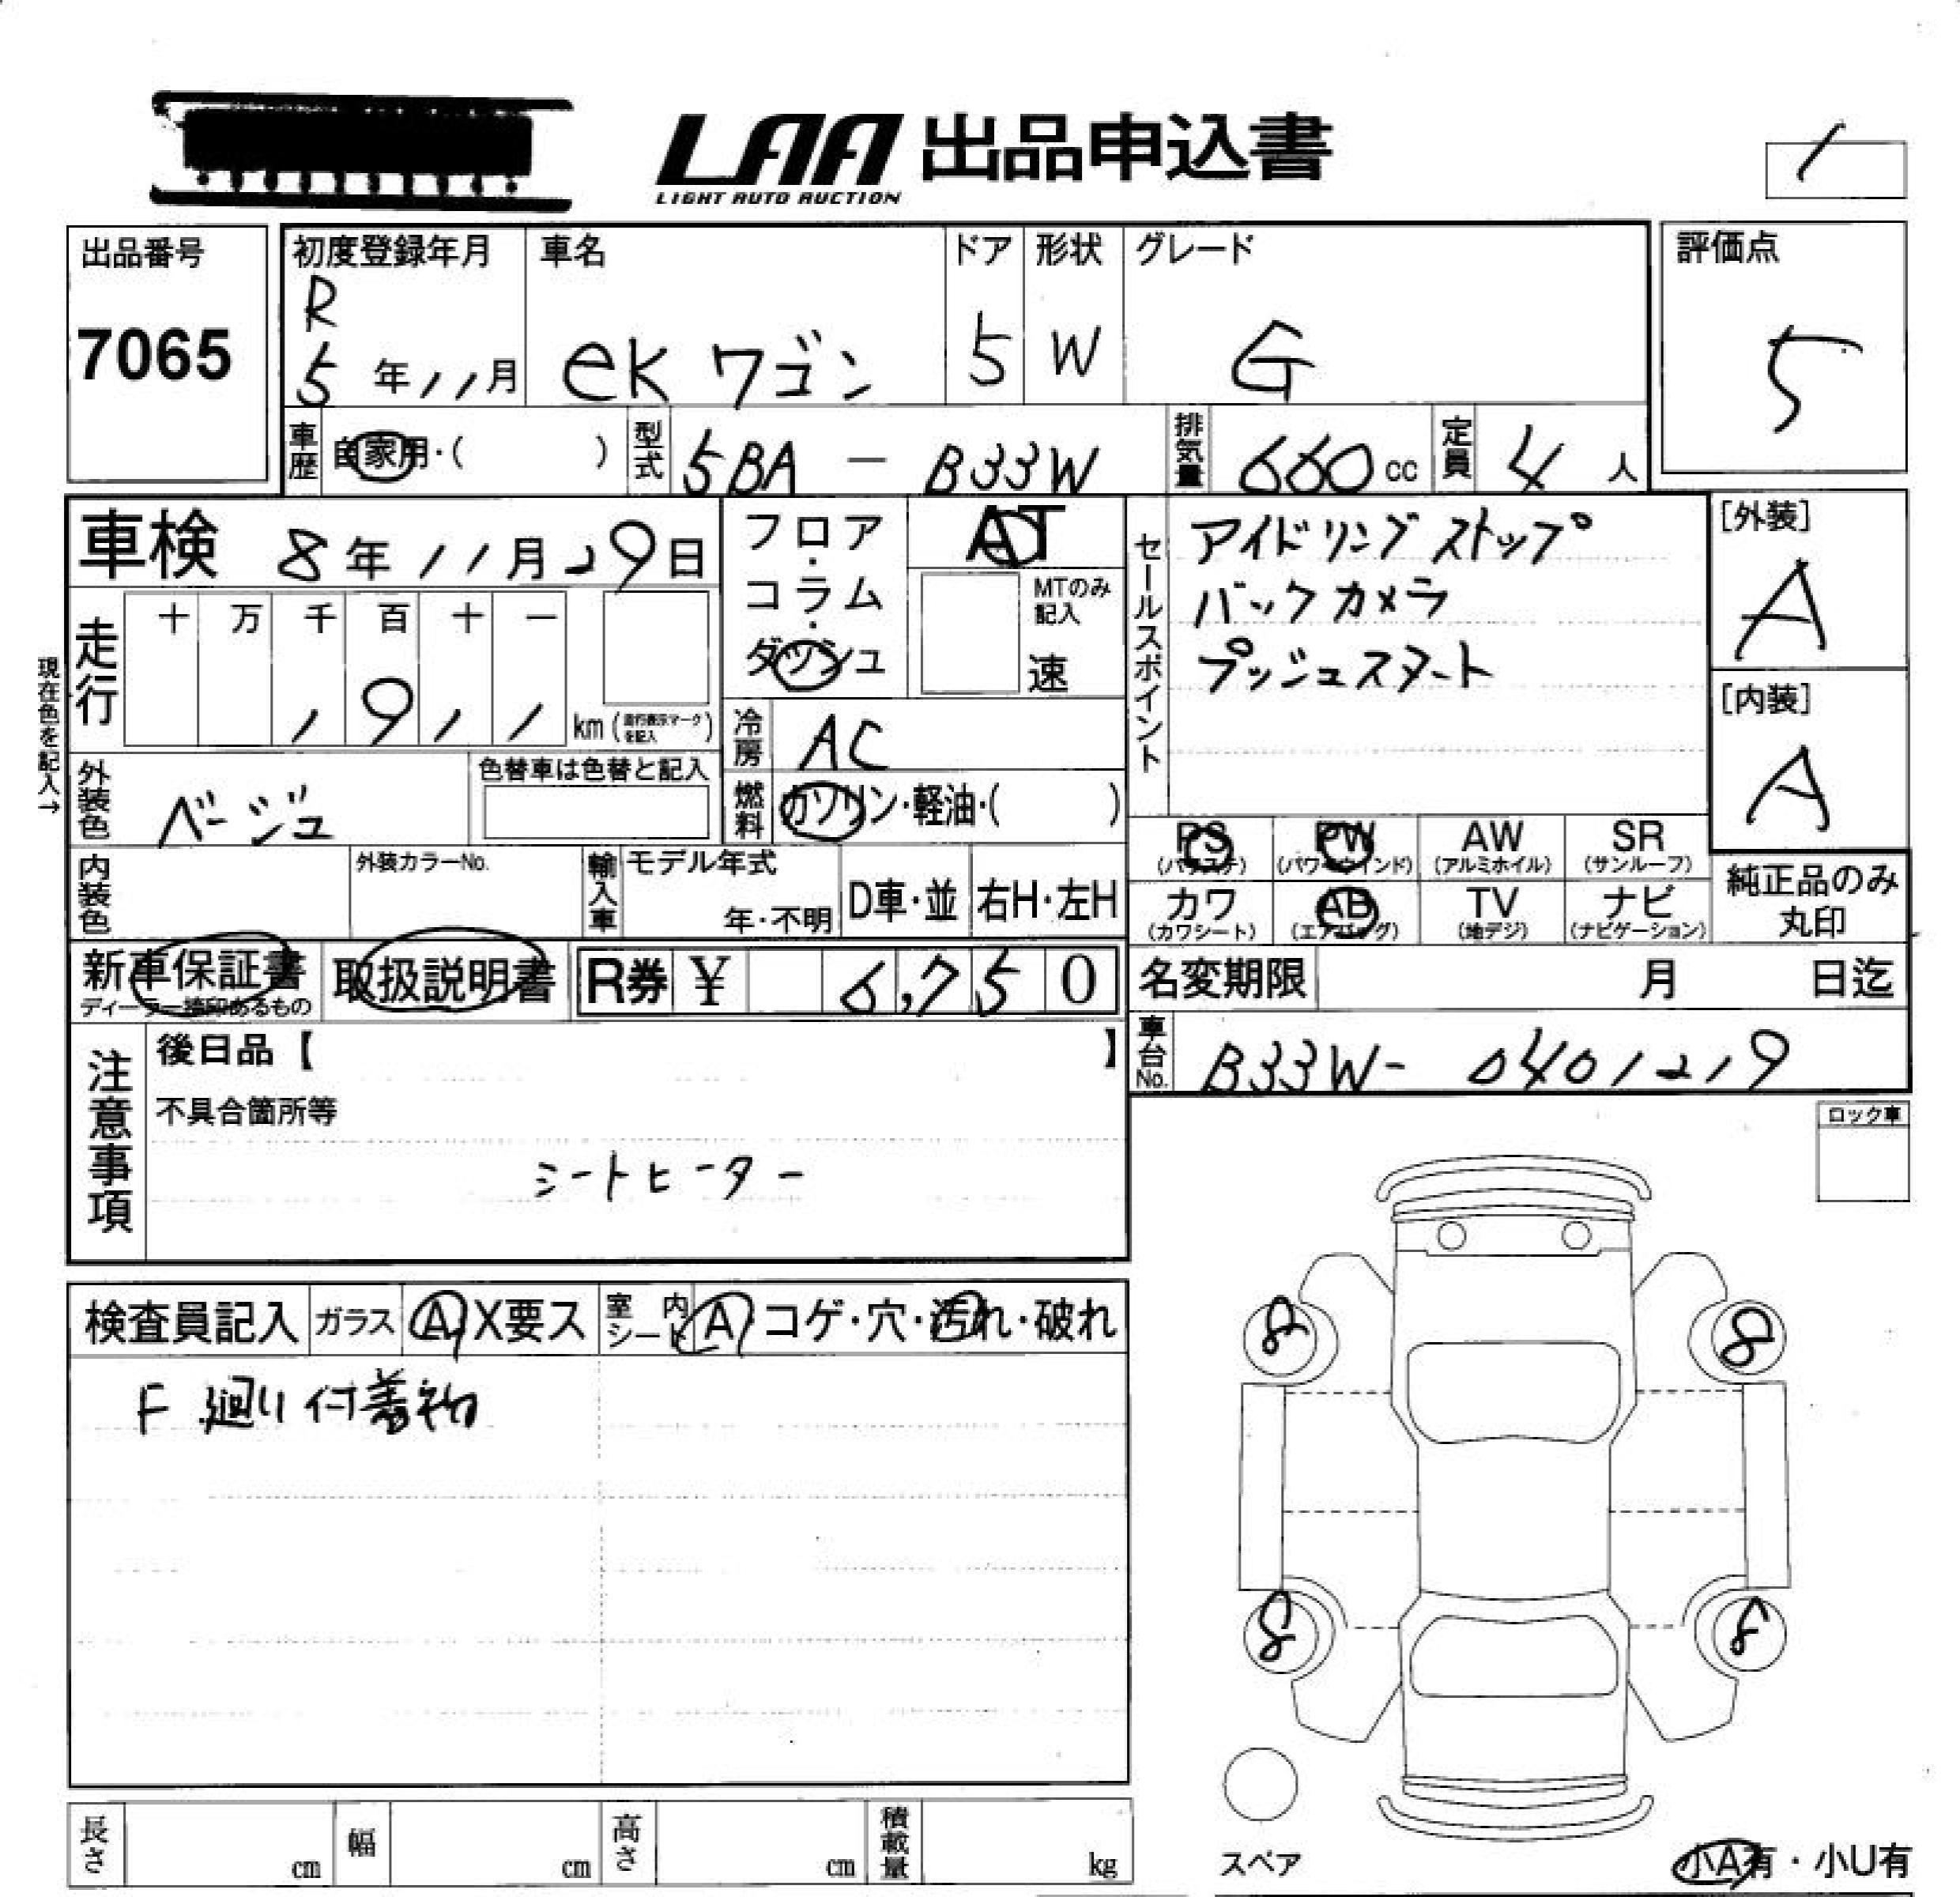 LAA 出品申込書
LIGHT AUTO AUCTION
出品番号
7065
初度登録年月
R
5 年 11 月
車名
eK ワゴン
ドア
5
形状
W
グレード
G
評価点
5
車歴 自家用・( )
型式 5BA - B33W
排気量 660 cc
定員 4 人
車検 8 年 11 月 29 日
フロア・コラム・ダッシュ
AT
MTのみ記入
速
セールスポイント
アイドリングストップ
バックカメラ
プッシュスタート
[外装]
A
[内装]
A
現在色を記入→
走行
十 万 千 百 十 一
1 9 1 1 km (走行表示マークを記入)
冷房 AC
燃料 ガソリン・軽油・( )
外装色 ベージュ
色替車は色替と記入
内装色
外装カラーNo.
輸入車 モデル年式
年・不明
D車・並 右H・左H
PS (パワステ) PW (パワーウインド) AW (アルミホイル) SR (サンルーフ)
カワ (カワシート) AB (エアバッグ) TV (地デジ) ナビ (ナビゲーション)
純正品のみ丸印
新車保証書
ディーラー捺印あるもの
取扱説明書
R券 ¥ 6,750
名変期限 月 日迄
車台No. B33W- 0401219
注意事項
後日品【 】
不具合箇所等
シートヒーター
ロック車
検査員記入 ガラス A X要ス 室内シート A コゲ・穴・汚れ・破れ
F 廻り付着物
8 8
8 8
スペア
小A有・小U有
長さ cm 幅 cm 高さ cm 積載量 kg